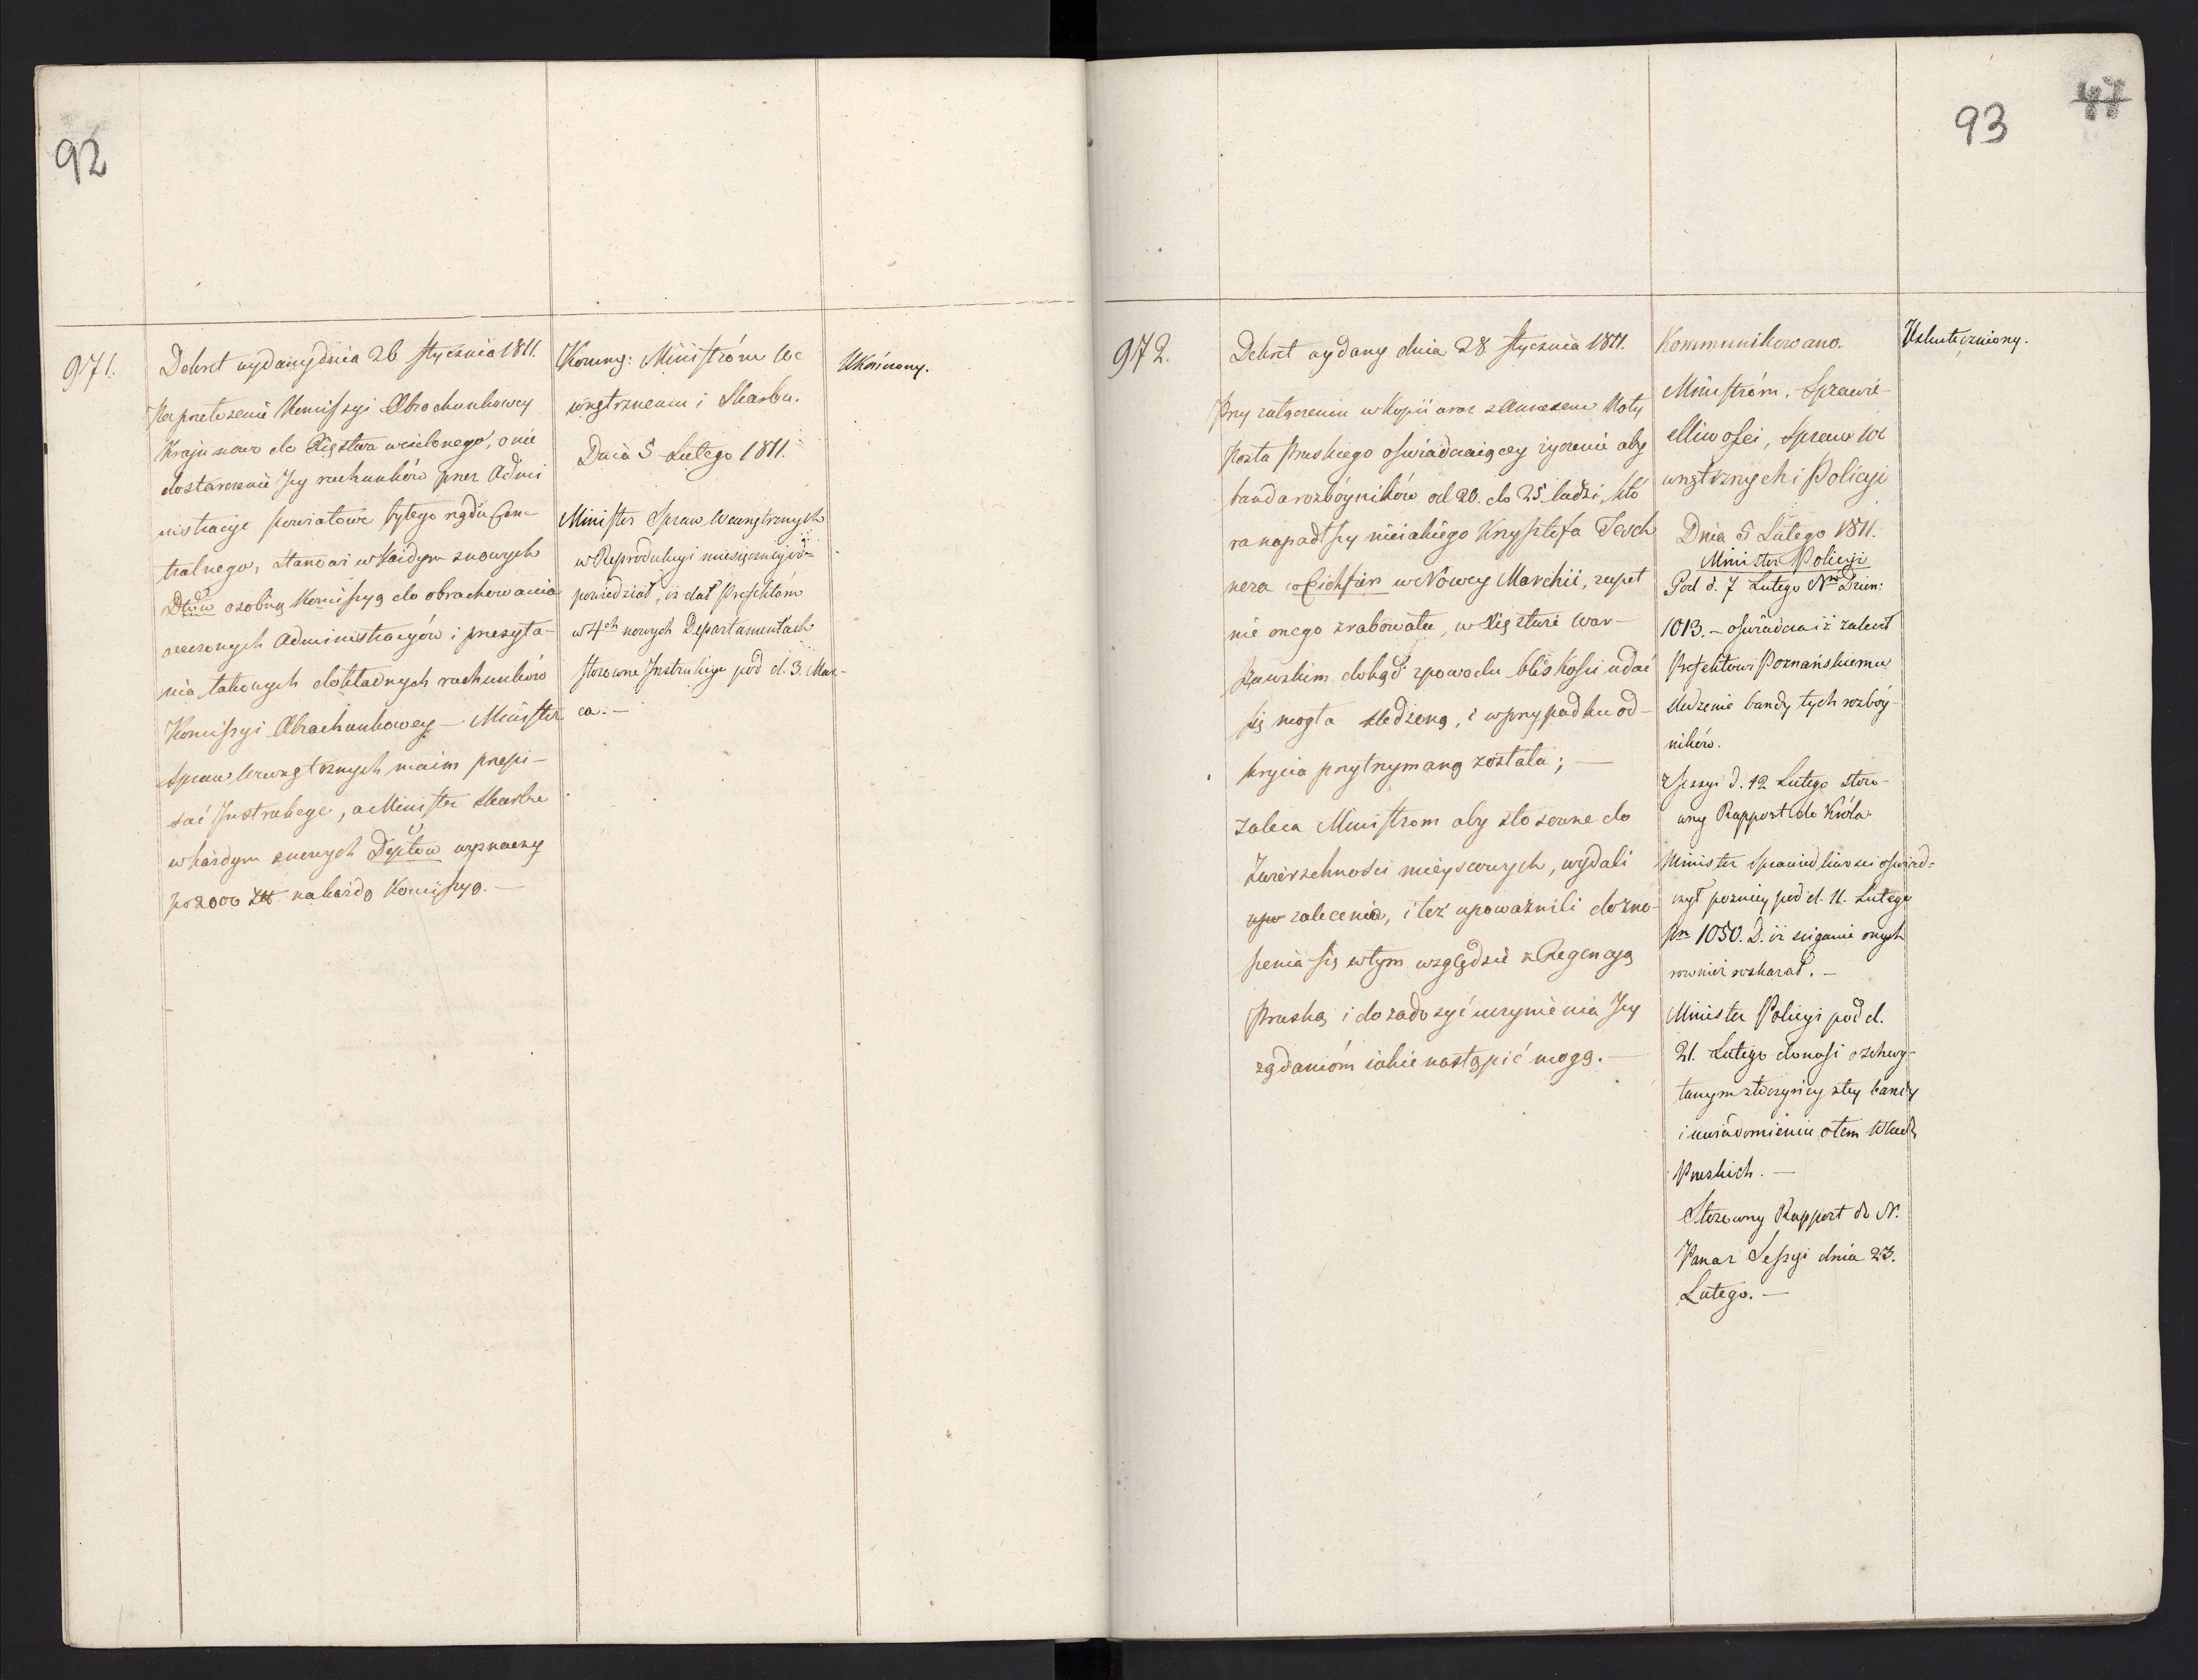 92
971.
Dekret wydany dnia 26 Stycznia 1811.
Na przełożenie Kommissyi Obrachunkowey
Kraju nowo do Xięstwa wcielonego, o nie
dostarczenie Jey rachunków przez Admi
nistracye powiatowe byłego rządu Cen-
tralnego, stanowi w każdym z nowych
Dtów osobną Komissyą do obrachowania
rzeczonych Administracyów i przesyła-
nia takowych dokładnych rachunków
Komissyi Obrachunkowey – Minister
Spraw Wewnętrznych ma im przepi-
sać Instrukcye, a Minister Skarbu
w każdym z nowych Deptów wyznaczy
po 2000 Zł na każdą Komissyą. –
Kommg: Ministróm We
wnętrznemu i Skarbu.
Dnia 5 Lutego 1811.
Minister Spraw Wewnętrznych
w Reprodukcyi miesięczney od-
powiedział, iż dał Prefektóm
w 4ch nowych Departamentach
stosowne Instrukcye pod d. 3. Mar-
ca. –
Ukończony.
93
47
972.
Dekret wydany dnia 28 Stycznia 1811.
Przy załączeniu w Kopii oraz z Annexem Noty
Posła Pruskiego oświadczaiącey życzenie aby
banda rozbóyników od 20. do 25 ludzi, któ
ra napadłszy nieiakiego Krysztofa Tesch
nera w Eichfier w Nowey Marchii, zupeł
nie onego zrabowała, w Xięstwie War-
szawskim dokąd z powodu bliskości udać
się mogła śledzoną, i w przypadku od-
krycia przytrzymaną została; –
zaleca Ministrom aby stosowne do
Zwierzchności mieyscowych, wydali
upo zalecenia, i też upoważnili do zno-
szenia się w tym względzie z Regencyą
Pruską i do zadosyć uczynienia Jey
żądaniom iakie nastąpić mogą. –
Kommunikowano.
Ministróm, Sprawie-
dliwości, Spraw We
wnętrznych i Policyi
Dnia 5 Lutego 1811.
Minister Policyi
Pod d. 7 Lutego Nro Dzien:
1013. – oświadcza iż zalecił
Prefektowi Poznańskiemu
śledzenie bandy tych rozbóy-
ników.
z Sessyi d. 12 Lutego stoso-
wny Rapport do Króla.
Minister Sprawiedliwości oświad-
czył pozniey pod d. 11. Lutego
1050. D. iż sciganie onych
rownież rozkazał. –
Minister Policyi pod d.
21. Lutego donosi o schwy-
tanym złoczyńcy z tey bandy
i uwiadomieniu o tem Władz
Pruskich. –
Stosowny Rapport do N.
Pana z Sessyi dnia 23.
Lutego. –
Uskuteczniony.